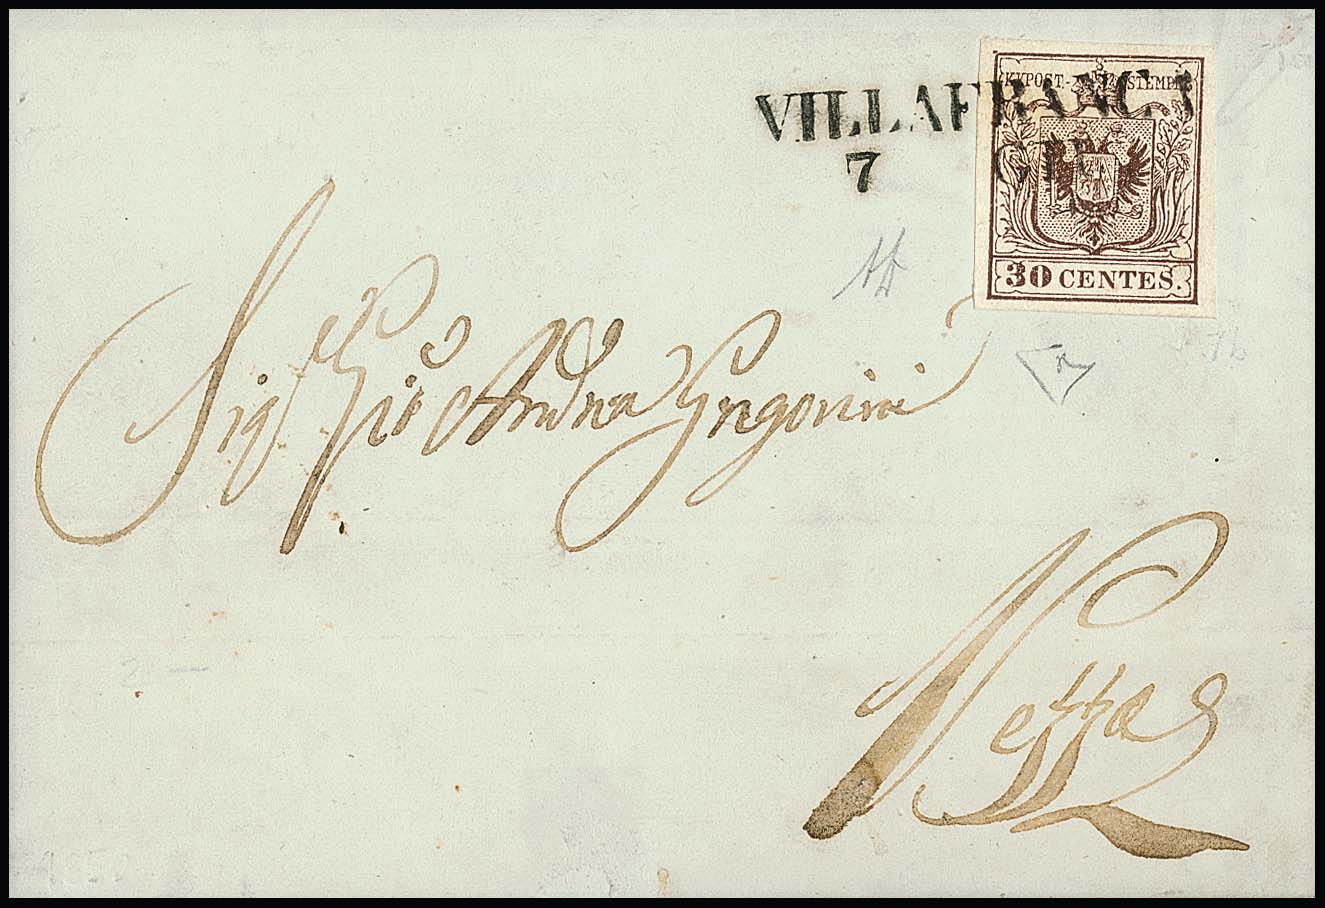 KKPOST-STEMPEL
VILLAFRANCA
7 GIU
30 CENTES.
Sig. Gio Andrea Gregorini
Vezza